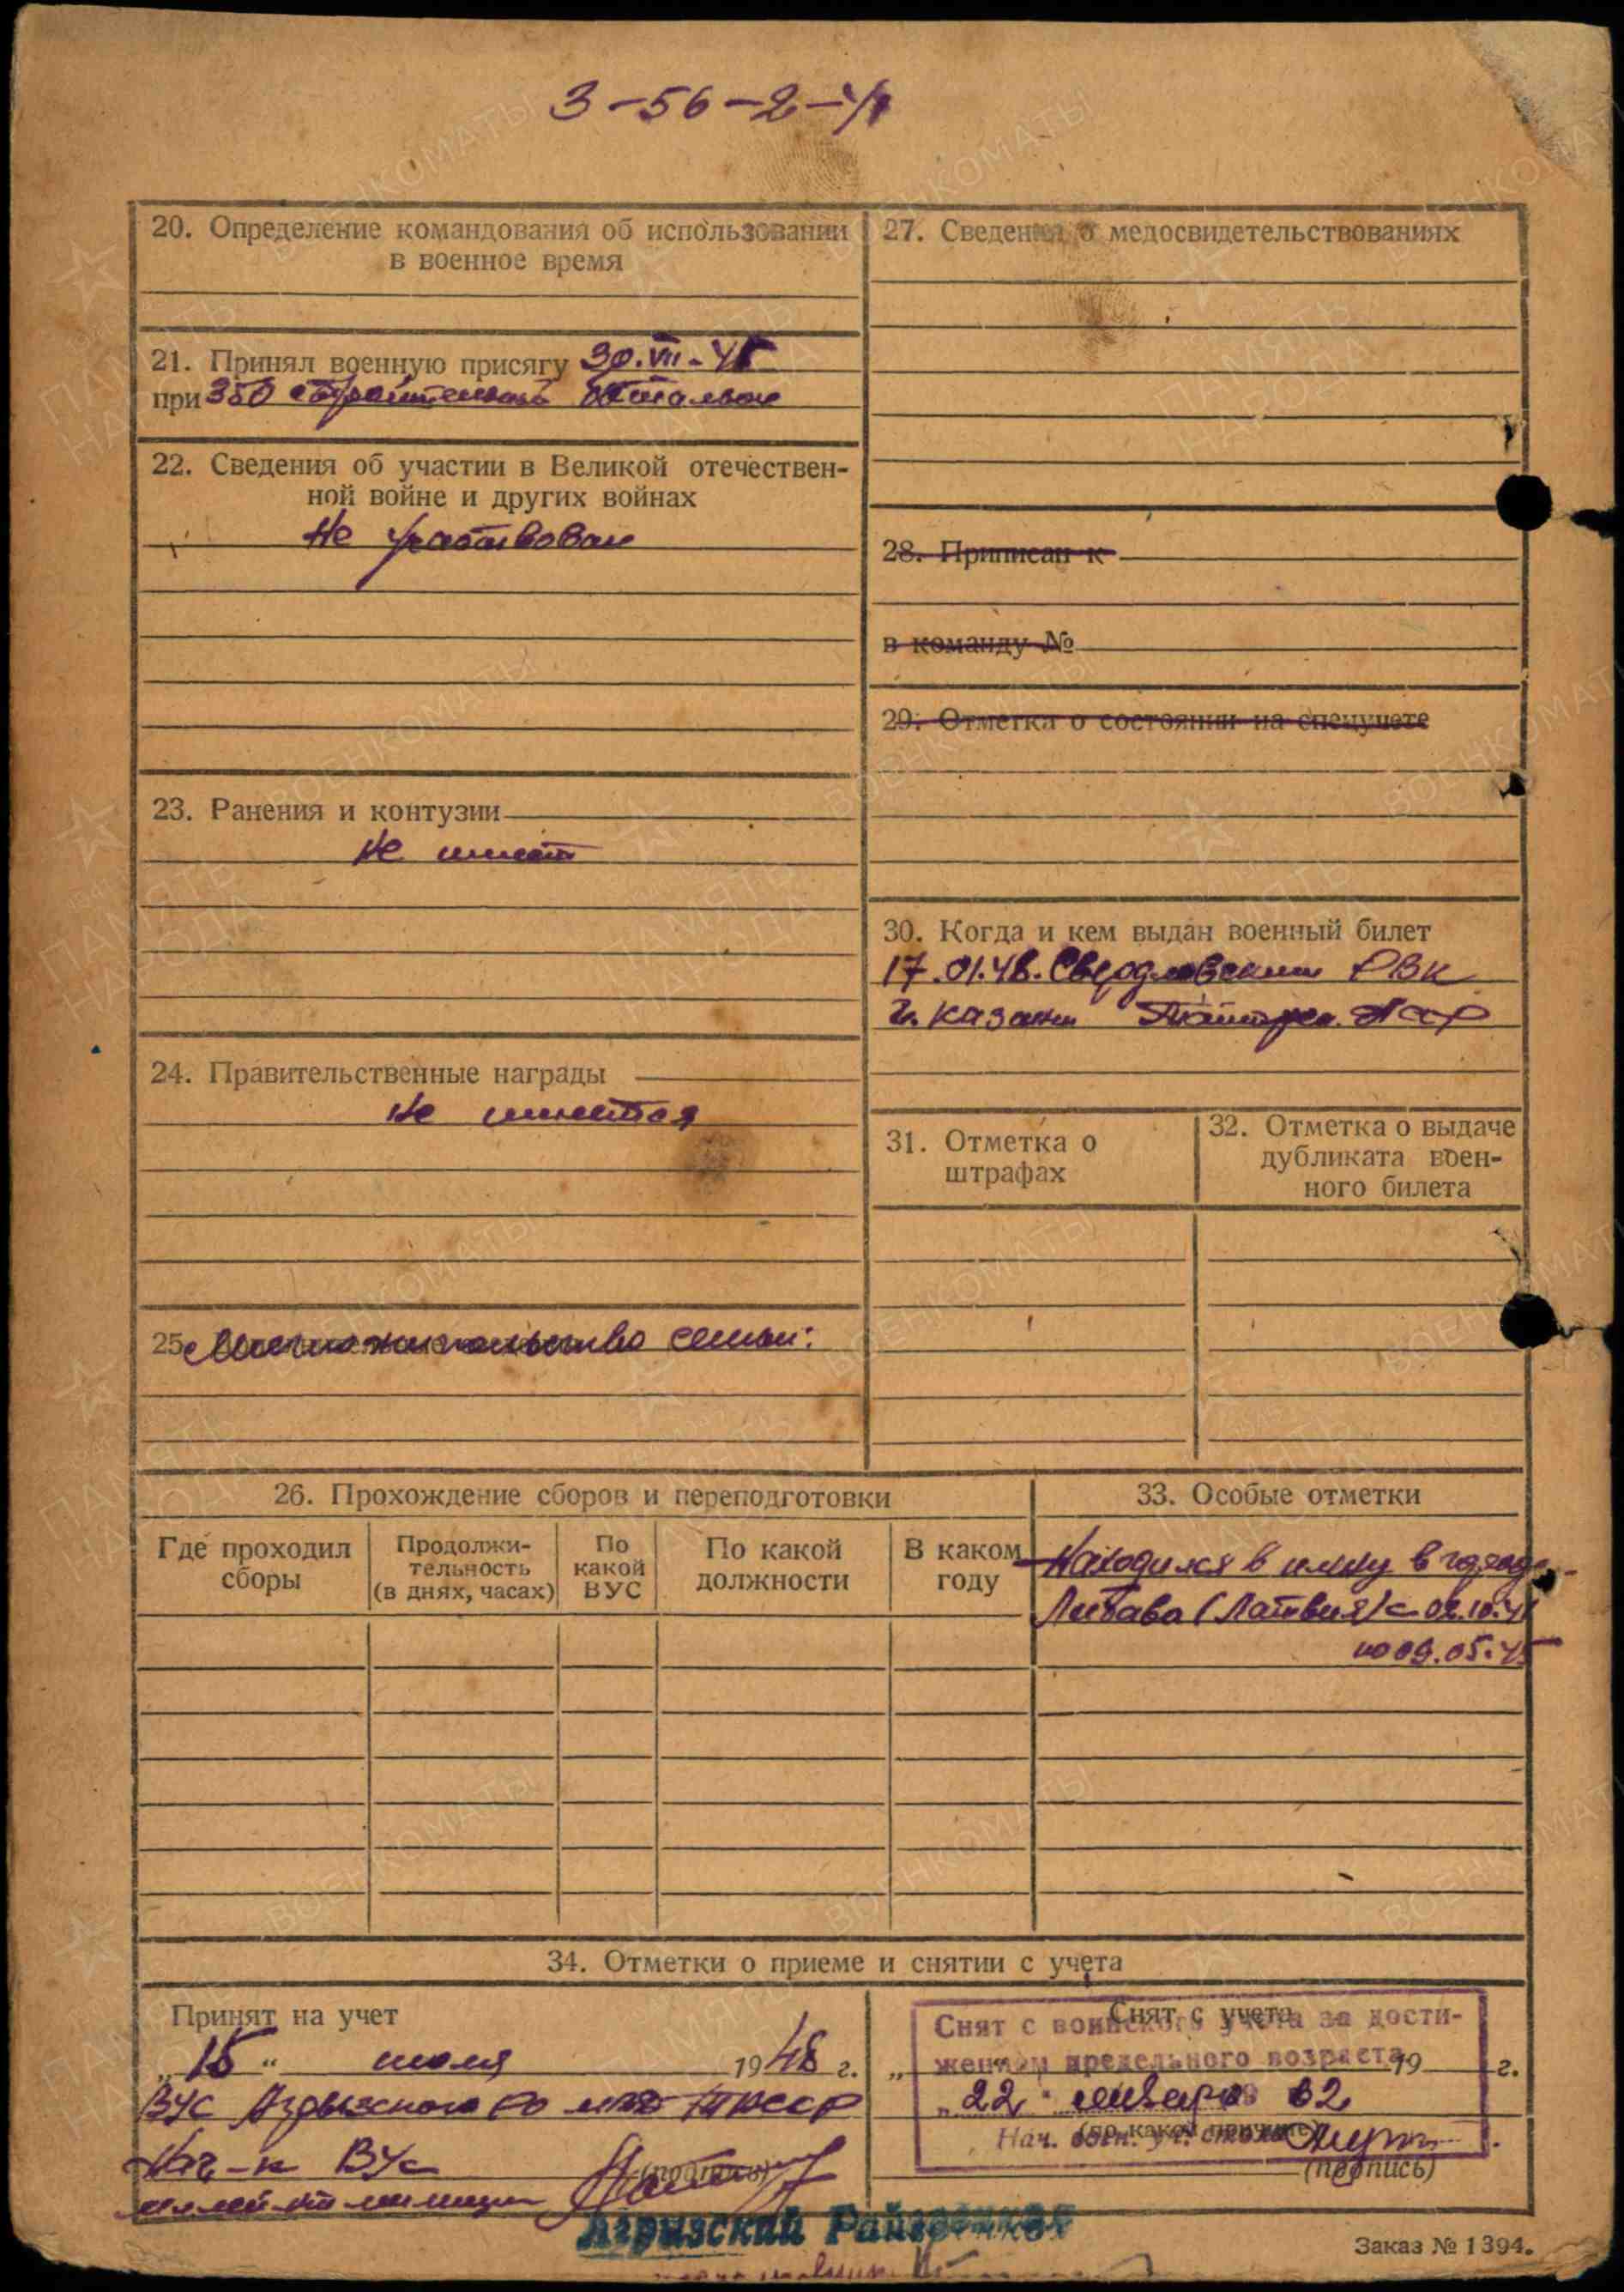 3-56-2-
20. Определение командования об использовании
в военное время
21. Принял военную присягу 30.VII-45
при 350 строительном батальоне
22. Сведения об участии в Великой отечествен-
ной войне и других войнах
Не участвовал
23. Ранения и контузии
Не имеет
24. Правительственные награды
Не имеется
25. Место жительство семьи:
27. Сведения о медосвидетельствованиях
28. Приписан к
в команду №
29. Отметка о состоянии на спецучете
30. Когда и кем выдан военный билет
17.01.48. Свердловским РВК
г. Казани АССР
31. Отметка о
штрафах
32. Отметка о выдаче
дубликата воен-
ного билета
26. Прохождение сборов и переподготовки
Где проходил
сборы
Продолжи-
тельность
(в днях, часах)
По
какой
ВУС
По какой
должности
В каком
году
33. Особые отметки
Находился в плену в городе
Либава (Латвия) с 02.10.41
по 09.05.45
34. Отметки о приеме и снятии с учета
Принят на учет
„15“ июля 1948 г.
ВУС Агрызского РО МВД ТАССР
Нач-к ВУС
мл. лей-нт милиции
(подпись)
Агрызский Райвоенком
Снят с учета
„ 19 г.
(по какой причине)
(подпись)
Снят с воинского учета за дости-
жением предельного возраста
„22“ января 62
Нач. воен. уч. стола
Заказ № 1394.